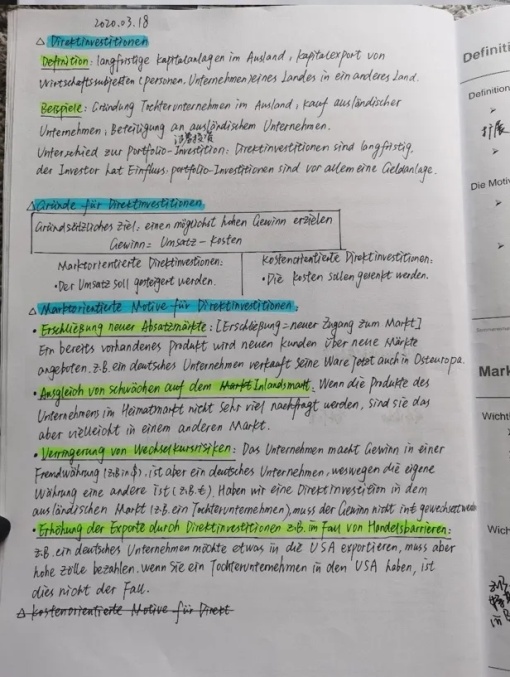 2020.03.18
△ Direktinvestitionen
Definition: langfristige Kapitalanlagen im Ausland, Kapitalexport von
Wirtschaftssubjekten (Personen, Unternehmen) eines Landes in ein anderes Land.
Beispiele: Gründung Tochterunternehmen im Ausland, Kauf ausländischer
Unternehmen, Beteiligung an ausländischem Unternehmen.
Unterschied zur Portfolio-Investition: Direktinvestitionen sind langfristig.
der Investor hat Einfluss. portfolio-Investitionen sind vor allem eine Geldanlage.
△ Gründe für Direktinvestitionen
Grundsätzliches Ziel: einen möglichst hohen Gewinn erzielen
Gewinn = Umsatz - Kosten
Marktorientierte Direktinvestitionen:
• Der Umsatz soll gesteigert werden.
Kostenorientierte Direktinvestitionen:
• Die Kosten sollen gesenkt werden.
△ Marktorientierte Motive für Direktinvestitionen:
• Erschließung neuer Absatzmärkte: [Erschließung = neuer Zugang zum Markt]
Ein bereits vorhandenes Produkt wird neuen Kunden über neue Märkte
angeboten. z.B. ein deutsches Unternehmen verkauft seine Ware jetzt auch in Osteuropa.
• Ausgleich von Schwächen auf dem Markt Inlandsmarkt. Wenn die Produkte des
Unternehmens im Heimatmarkt nicht sehr viel nachfragt werden, sind sie das
aber vielleicht in einem anderen Markt.
• Verringerung von Wechselkursrisiken: Das Unternehmen macht Gewinn in einer
Fremdwährung (z.B in $). ist aber ein deutsches Unternehmen, weswegen die eigene
Währung eine andere ist (z.B. €). Haben wir eine Direktinvestition in dem
ausländischen Markt (z.B. ein Tochterunternehmen), muss der Gewinn nicht in € gewechselt werden
• Erhöhung der Exporte durch Direktinvestitionen z.B. im Fall von Handelsbarrieren:
z.B. ein deutsches Unternehmen möchte etwas in die USA exportieren, muss aber
hohe Zölle bezahlen. wenn Sie ein Tochterunternehmen in den USA haben, ist
dies nicht der Fall.
△ Kostenorientierte Motive für Direkt
Definiti
Definition
扩展
Die Motiv
Mark
Wichti
Wich